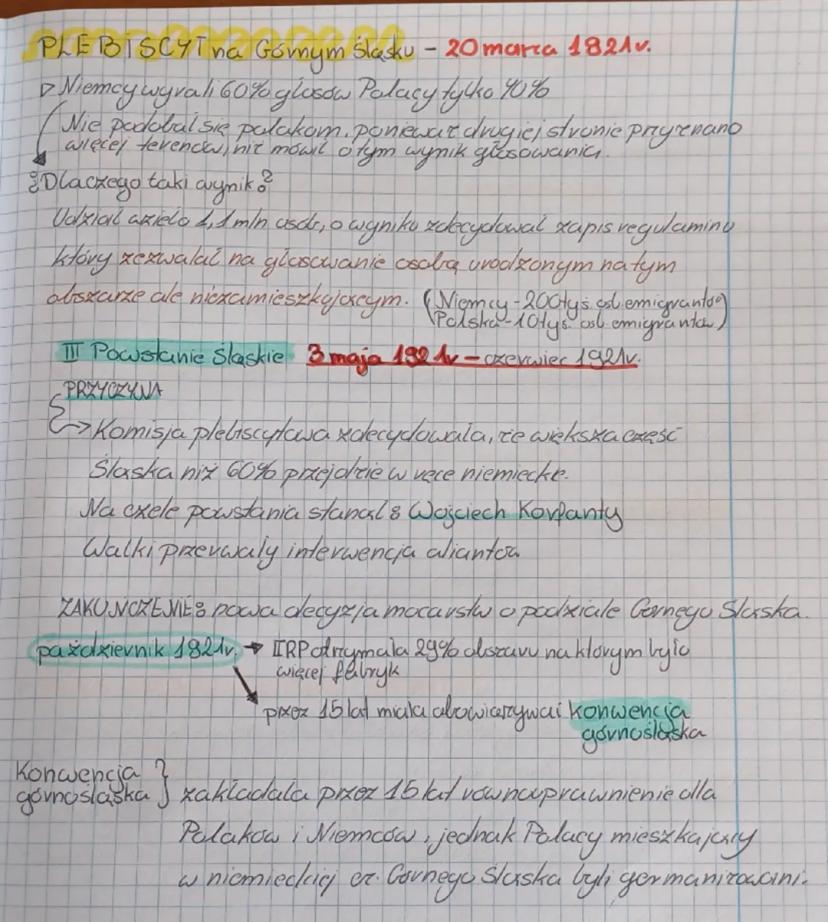 PLEBISCYT na Górnym Śląsku - 20 marca 1921r.
▷ Niemcy wygrali 60% głosów Polacy tylko 40%
Nie podobał się polakom, ponieważ drugiej stronie przyznano
więcej terenów, niż mówił o tym wynik głosowania.
¿Dlaczego taki wynik?
Udział wzięło 1,1 mln osób, o wyniku zdecydował zapis regulaminu
który zezwalał na głosowanie osobą urodzonym na tym
obszarze ale niezamieszkującym. (Niemcy - 200tyś. os. emigrantów
Polska - 10tyś. os. emigrantów)
III Powstanie Śląskie 3 maja 1921r - czerwiec 1921r.
PRZYCZYNA
→ Komisja plebiscytowa zdecydowała, że większa część
Śląska niż 60% przejdzie w ręce niemieckie.
Na czele powstania stanął: Wojciech Korfanty
Walki przerwały interwencja aliantów
ZAKOŃCZENIE: nowa decyzja mocarstw o podziale Górnego Śląska.
październik 1921r. → II RP otrzymała 29% obszaru na którym było
więcej fabryk
przez 15 lat miała obowiązywać konwencja
górnośląska
Konwencja
górnośląska } zakładała przez 15 lat równouprawnienie dla
Polaków i Niemców, jednak Polacy mieszkający
w niemieckiej cz. Górnego Śląska byli germanizowani.